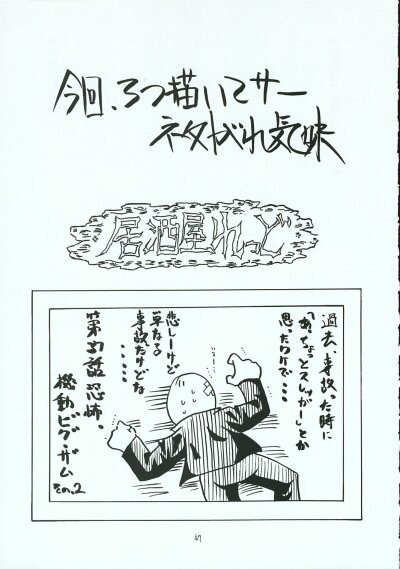 今回、3つ描いてサー
ネタがれ気味
居酒屋れっど
過去、事故った時に
「あっちょっとスレッガー」とか
思ったワケで・・・
悲しーけど
単なる
事故だけどな
・・・・・
第37話 恐怖、
機動ビグ・ザム
その2
67